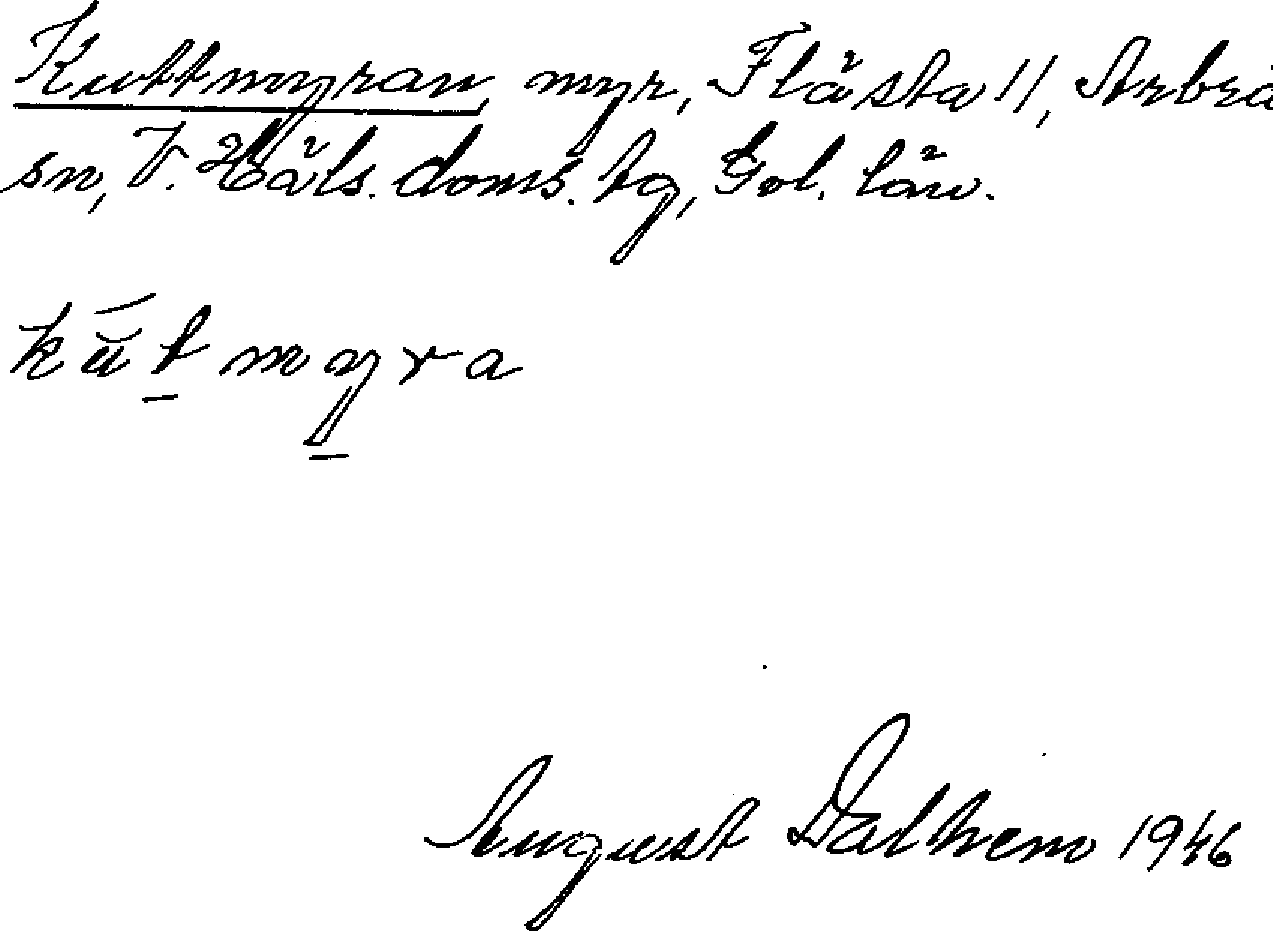 Kuttmyran, myr, Flästa 11, Arbrå
sn, V. Häls. doms. tg, Gvl. län.
kŭ́t myra
August Dalhem 1946